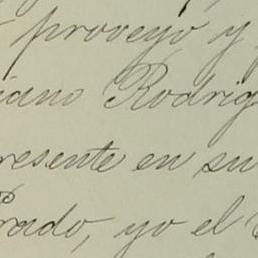 proveyo y
iano Rodrig
resente en su
rado, yo el